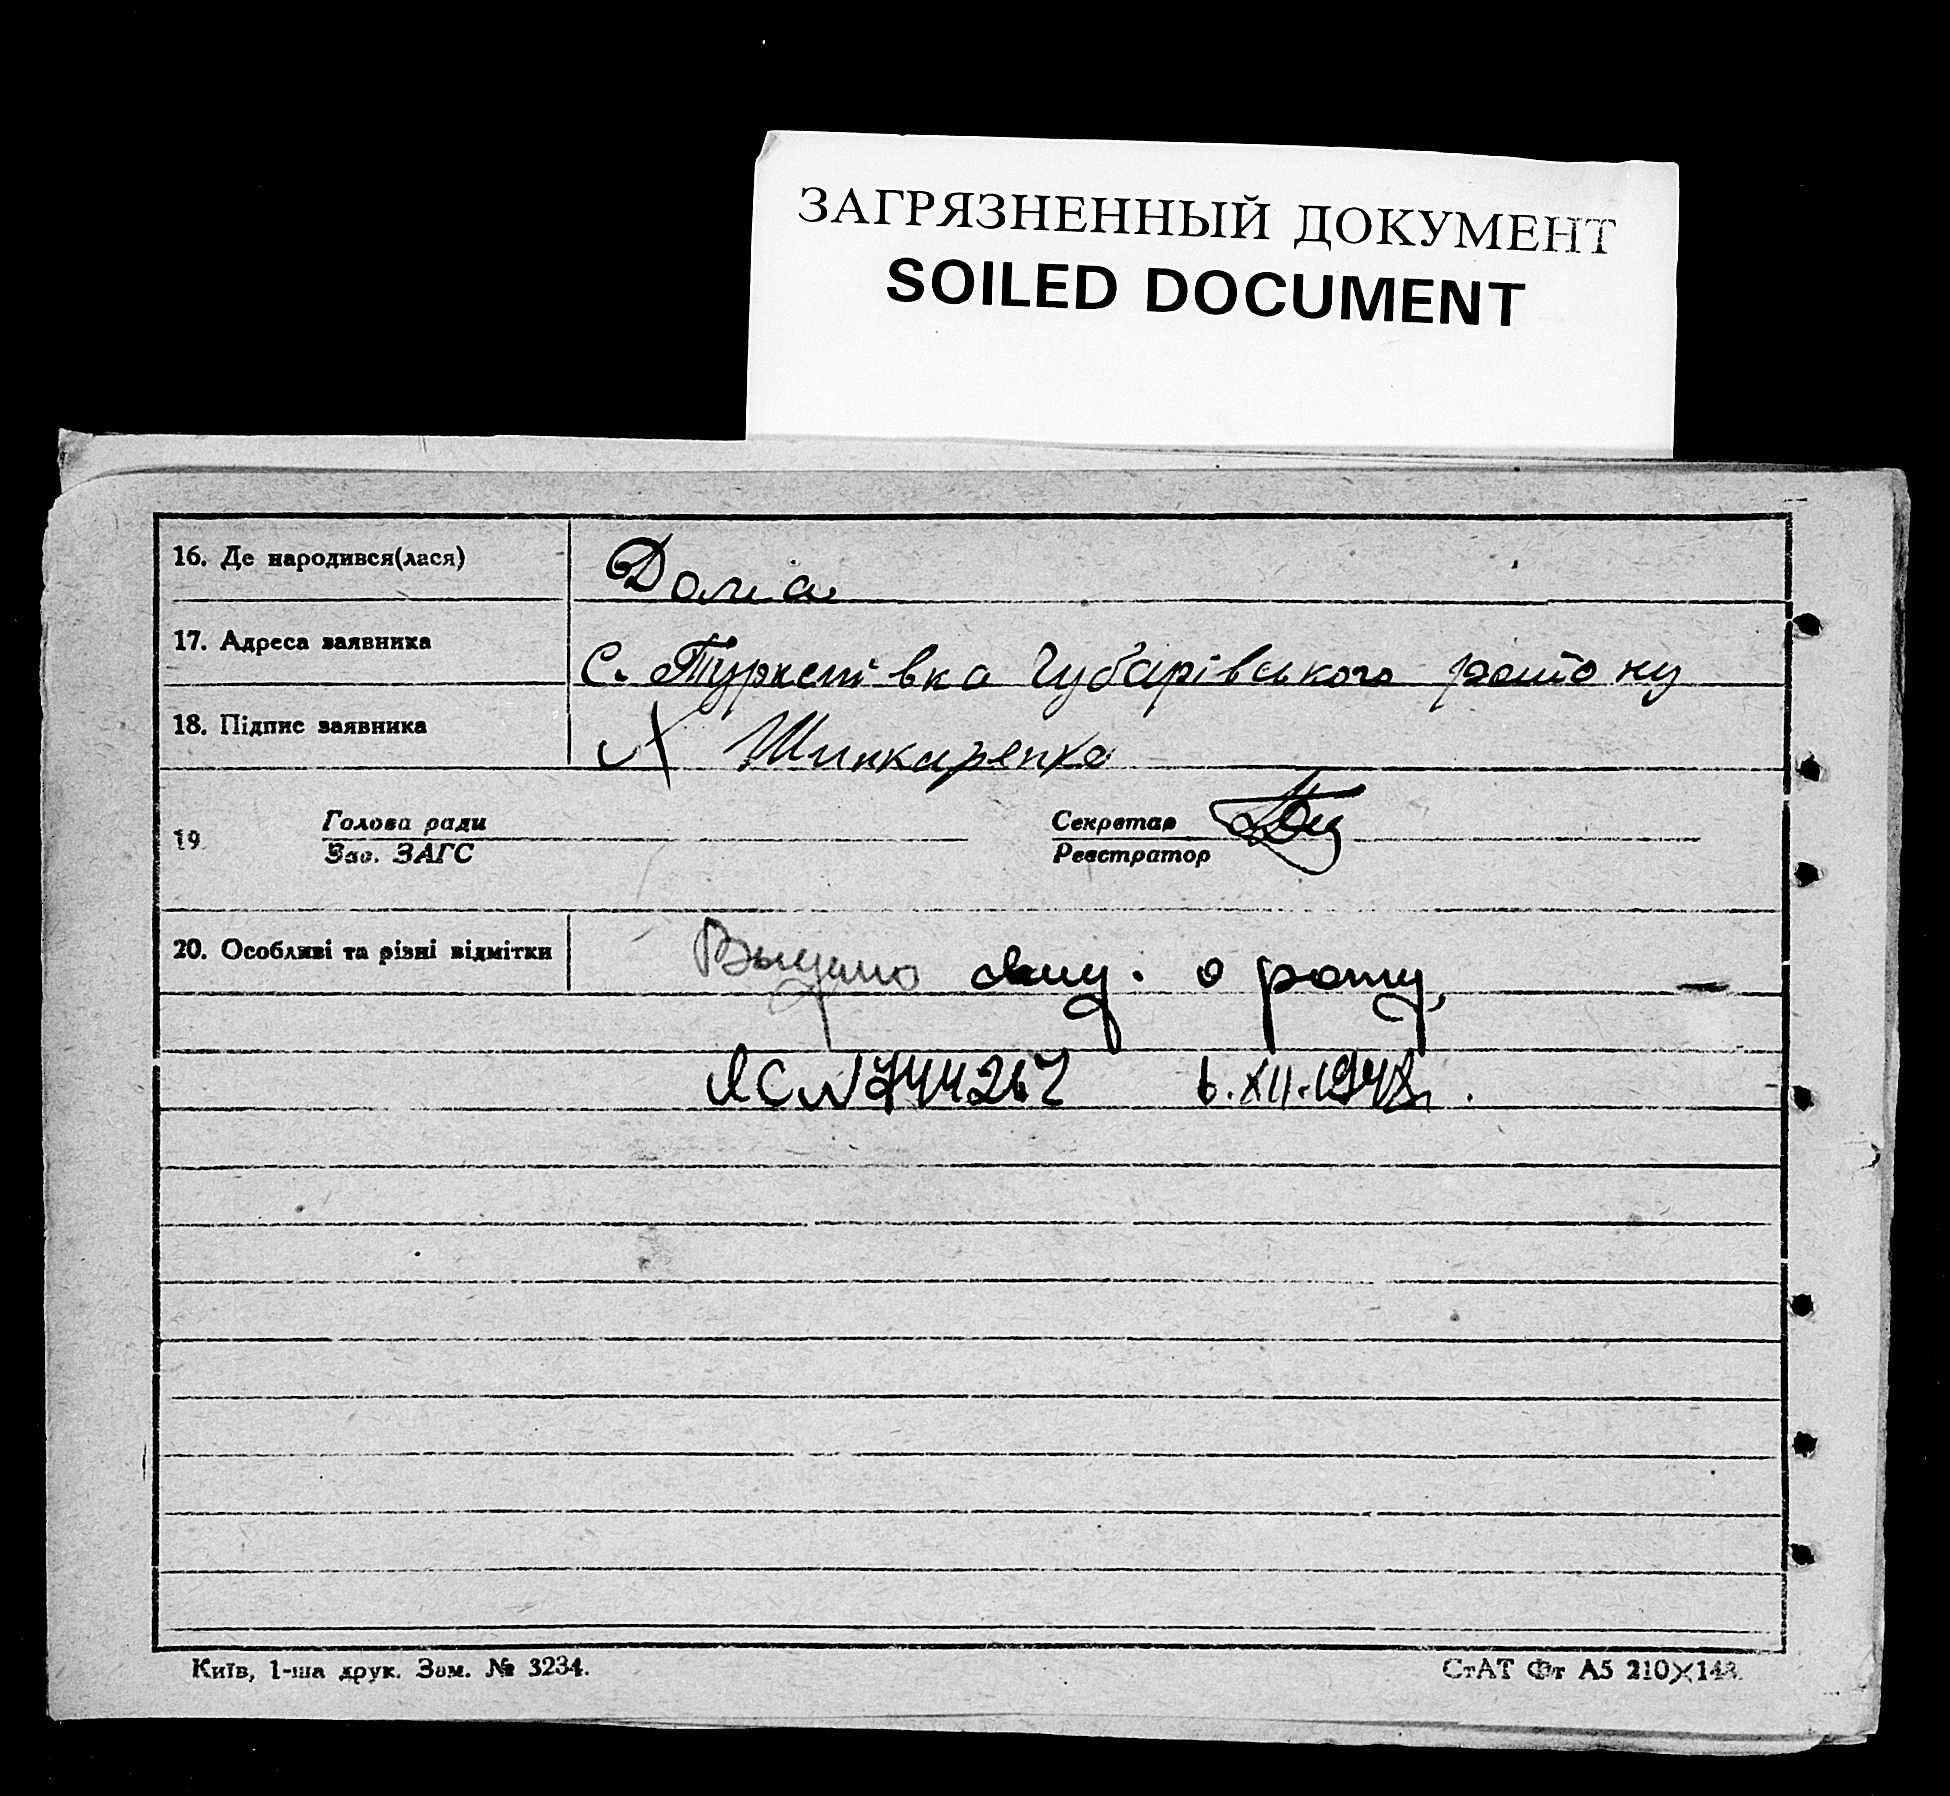 ЗАГРЯЗНЕННЫЙ ДОКУМЕНТ
SOILED DOCUMENT
16. Де народився(лася) Дома
17. Адреса заявника С. Туркенівка Чубарівського району
18. Підпис заявника Х Шинкаренко
19 Голова ради Секретар
Зав. ЗАГС Реєстратор
20. Особливі та різні відмітки Выдано о рожд.
6.XII.1948г.
Київ, 1-ша друк. Зам. № 3234. СтАТ Фт А5 210×148.